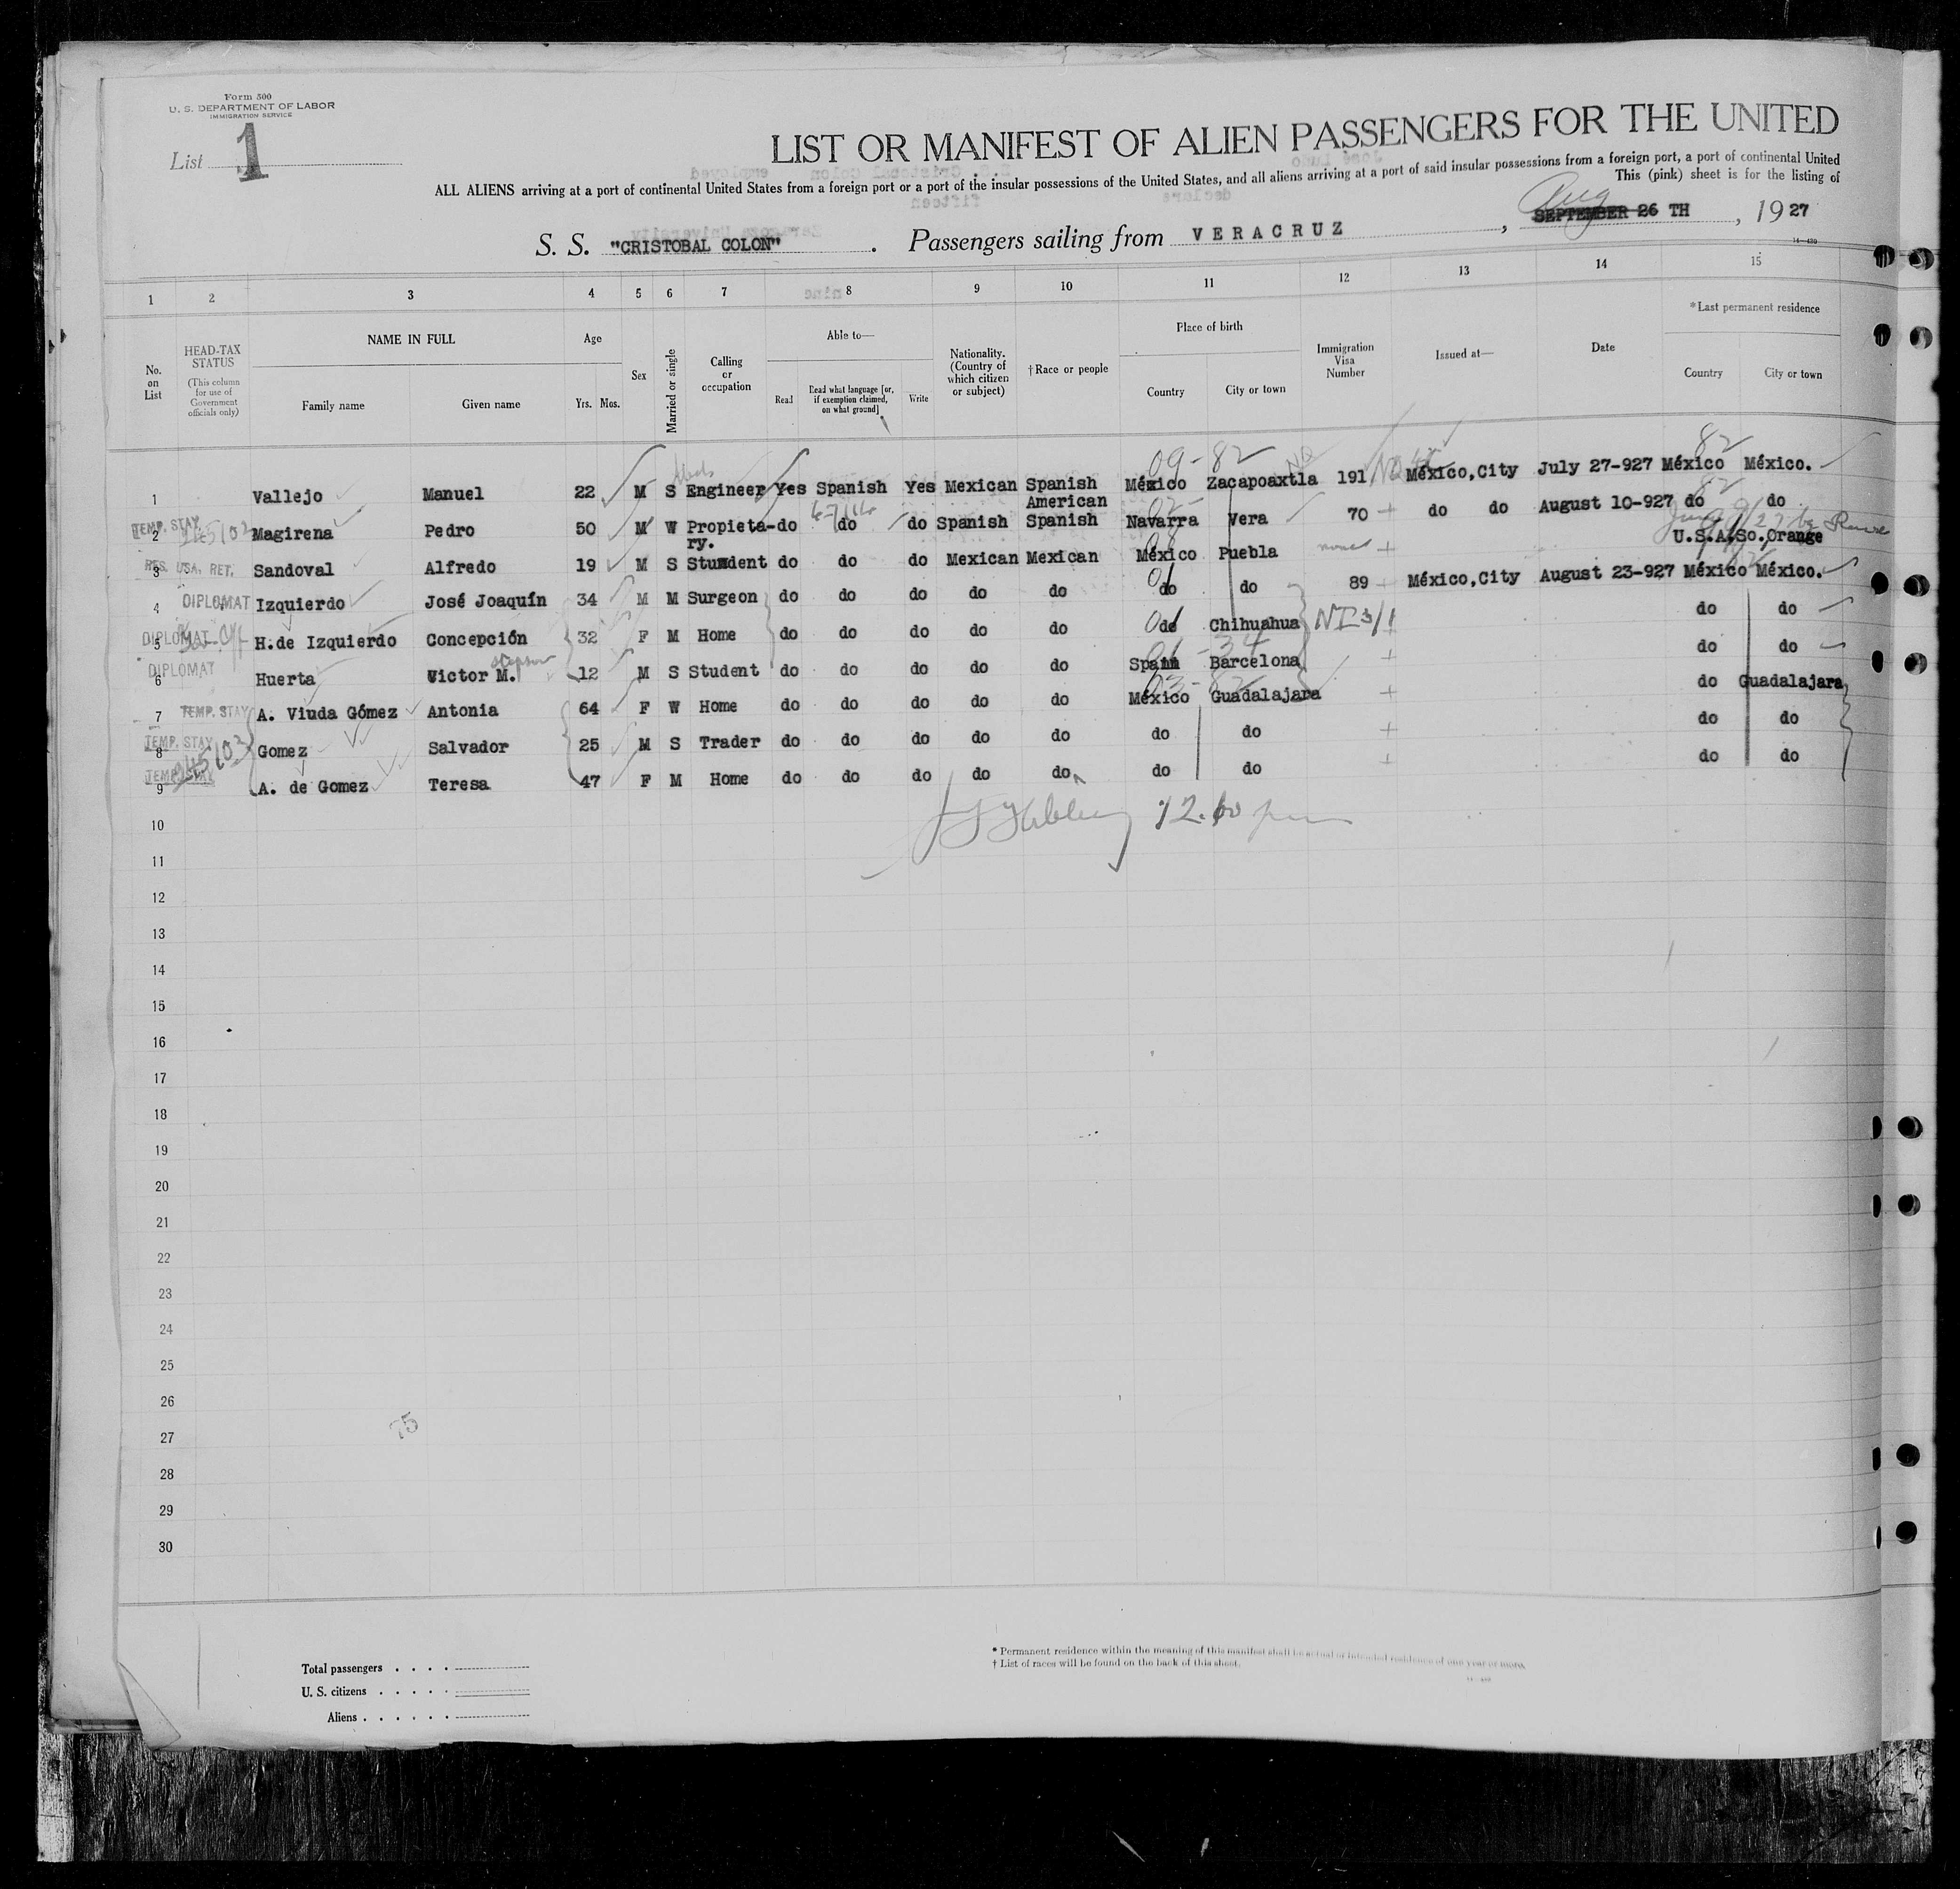 Form 500
U. S. DEPARTMENT OF LABOR
IMMIGRATION SERVICE
List 1
LIST OR MANIFEST OF ALIEN PASSENGERS FOR THE UNITED
ALL ALIENS arriving at a port of continental United States from a foreign port or a port of the insular possessions of the United States, and all aliens arriving at a port of said insular possessions from a foreign port, a port of continental United
This (pink) sheet is for the listing of
Aug
S. S. "CRISTOBAL COLON". Passengers sailing from VERACRUZ, SEPTEMBER 26 TH, 1927
14—430
1 2 3 4 5 6 7 8 9 10 11 12 13 14 15
No. on List
HEAD-TAX STATUS
(This column for use of Government officials only)
NAME IN FULL
Family name Given name
Age
Yrs. Mos.
Sex
Married or single
Calling or occupation
Able to—
Read
Read what language [or, if exemption claimed, on what ground]
Write
Nationality. (Country of which citizen or subject)
†Race or people
Place of birth
Country City or town
Immigration Visa Number
Issued at—
Date
*Last permanent residence
Country City or town
09-82 82
1 Vallejo Manuel 22 M S Engineer Yes Spanish Yes Mexican Spanish American México Zacapoaxtla 191 México,City July 27-927 México México.
TEMP. STAY
2 Magirena Pedro 50 M W Propieta-ry. do do do Spanish Spanish Navarra Vera 70 do do August 10-927 do do
RES. USA. RET.
3 Sandoval Alfredo 19 M S Stundent do do do Mexican Mexican México Puebla none U.S.A. So.Orange
4 DIPLOMAT Izquierdo José Joaquín 34 M M Surgeon do do do do do do do 89 México,City August 23-927 México México.
DIPLOMAT
5 H.de Izquierdo Concepción 32 F M Home do do do do do do Chihuahua NI 3/1 do do
DIPLOMAT stepson
6 Huerta Victor M. 12 M S Student do do do do do Spain Barcelona do do
7 TEMP. STAY A. Viuda Gómez Antonia 64 F W Home do do do do do México Guadalajara do Guadalajara
TEMP. STAY
8 Gomez Salvador 25 M S Trader do do do do do do do do do
TEMP. STAY
9 A. de Gomez Teresa 47 F M Home do do do do do do do do do
10
11
12
13
14
15
16
17
18
19
20
21
22
23
24
25
26
27
28
29
30
75
Total passengers
U. S. citizens
Aliens
* Permanent residence within the meaning of this manifest shall be actual or intended residence of one year or more.
† List of races will be found on the back of this sheet.